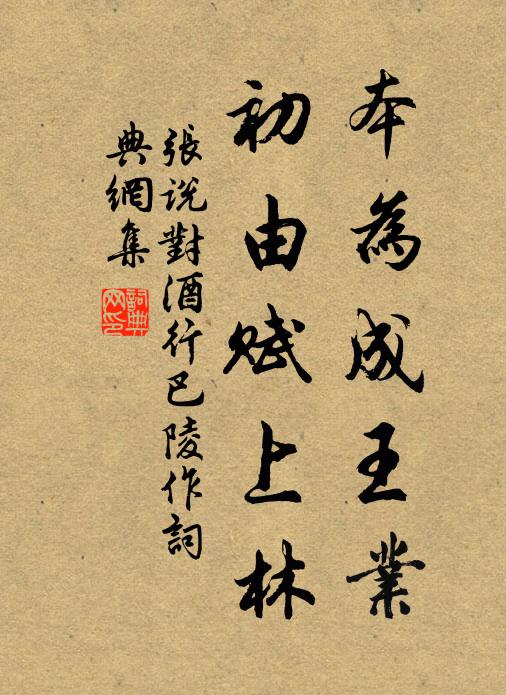 本為成王業
初由賦上林
張說對酒行巴陵作詞
典網集
詞典網印